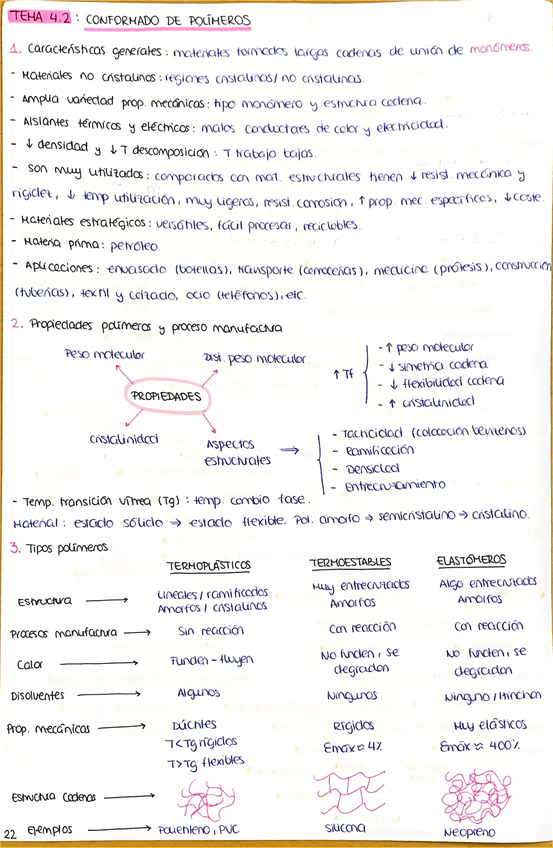 TEMA 4.2 : CONFORMADO DE POLÍMEROS
1. Características generales : materiales formados largas cadenas de unión de monómeros.
- Materiales no cristalinos : regiones cristalinas / no cristalinas.
- Amplia variedad prop. mecánicas : tipo monómero y estructura cadena.
- Aislantes térmicos y eléctricos : malos conductores de calor y electricidad.
- ↓ densidad y ↓ T descomposición : T trabajo bajas.
- Son muy utilizados : comparados con mat. estructurales tienen ↓ resist. mecánica y
rigidez, ↓ temp utilización, muy ligeros, resist. corrosión, ↑ prop. mec. específicos, ↓ coste.
- Materiales estratégicos : versátiles, fácil procesar, reciclables.
- Materia prima : petróleo.
- Aplicaciones : envasado (botellas), transporte (carrocerías), medicina (prótesis), construcción
(tuberías), textil y calzado, ocio (teléfonos), etc.
2. Propiedades polímeros y proceso manufactura
Peso molecular
Dist. peso molecular
PROPIEDADES
cristalinidad
Aspectos
estructurales
↑ Tf
- ↑ peso molecular
- ↓ simetría cadena
- ↓ flexibilidad cadena
- ↑ cristalinidad
- Tacticidad (colocación bencenos)
- Ramificación
- Densidad
- Entrecruzamiento
- Temp. transición vítrea (Tg) : temp. cambio fase.
Material : estado sólido → estado flexible. Pol. amorfo → semicristalino → cristalino.
3. Tipos polímeros
TERMOPLÁSTICOS TERMOESTABLES ELASTÓMEROS
Estructura → Lineales / ramificados Muy entrecruzados Algo entrecruzados
Amorfos / cristalinos Amorfos Amorfos
Procesos manufactura → Sin reacción Con reacción Con reacción
Calor → Funden - fluyen No funden, se No funden, se
degradan degradan
Disolventes → Algunos Ningunos Ninguno / Hinchan
Prop. mecánicas → Dúctiles Rígidos Muy elásticos
T<Tg rígidos Emáx ≈ 4% Emáx ≈ 400%
T>Tg flexibles
Estructura cadenas →
22 Ejemplos → Polietileno, PVC Silicona Neopreno